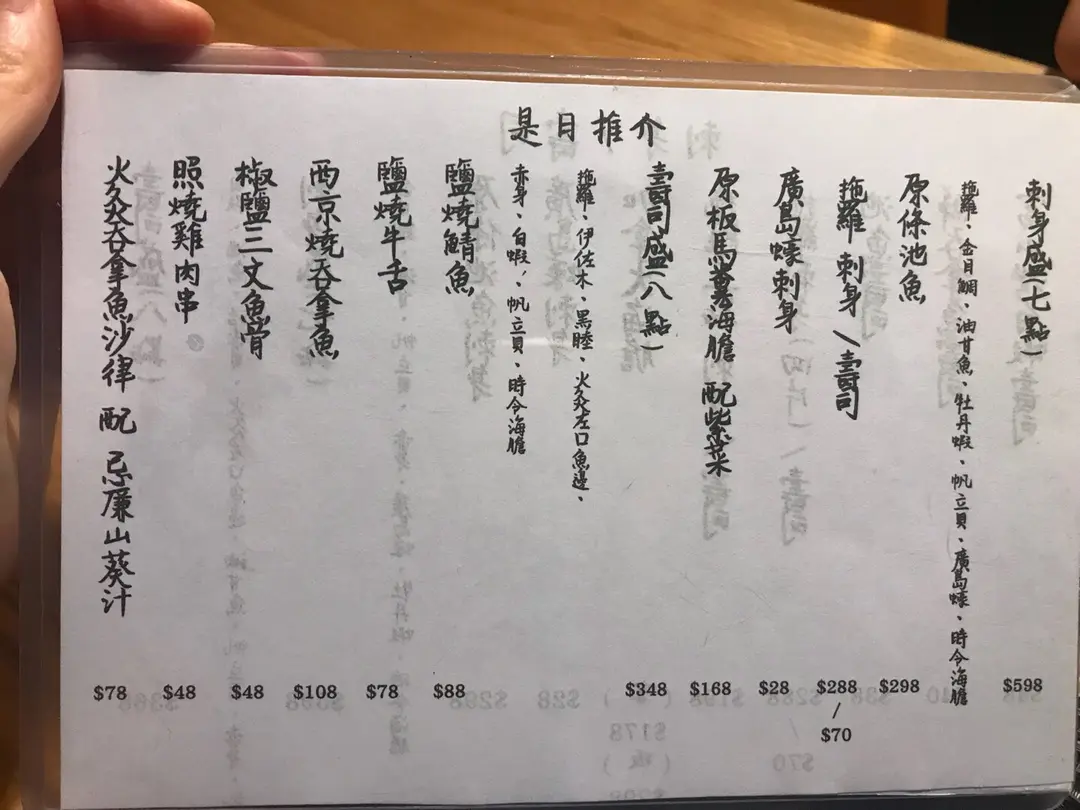 是日推介
刺身盛(七點) $598
拖羅、金目鯛、油甘魚、牡丹蝦、帆立貝、廣島蠔、時令海膽
原條池魚 $298
拖羅 刺身 / 壽司 $288 / $70
廣島蠔刺身 $28
原板馬糞海膽 配紫菜 $168
壽司盛(八點) $348
拖羅、伊佐木、黑睦、火炙左口魚邊、
赤身、白蝦、帆立貝、時令海膽
鹽燒鯖魚 $88
鹽燒牛舌 $78
西京燒吞拿魚 $108
椒鹽三文魚骨 $48
照燒雞肉串 $48
火炙吞拿魚沙律 配 忌廉山葵汁 $78